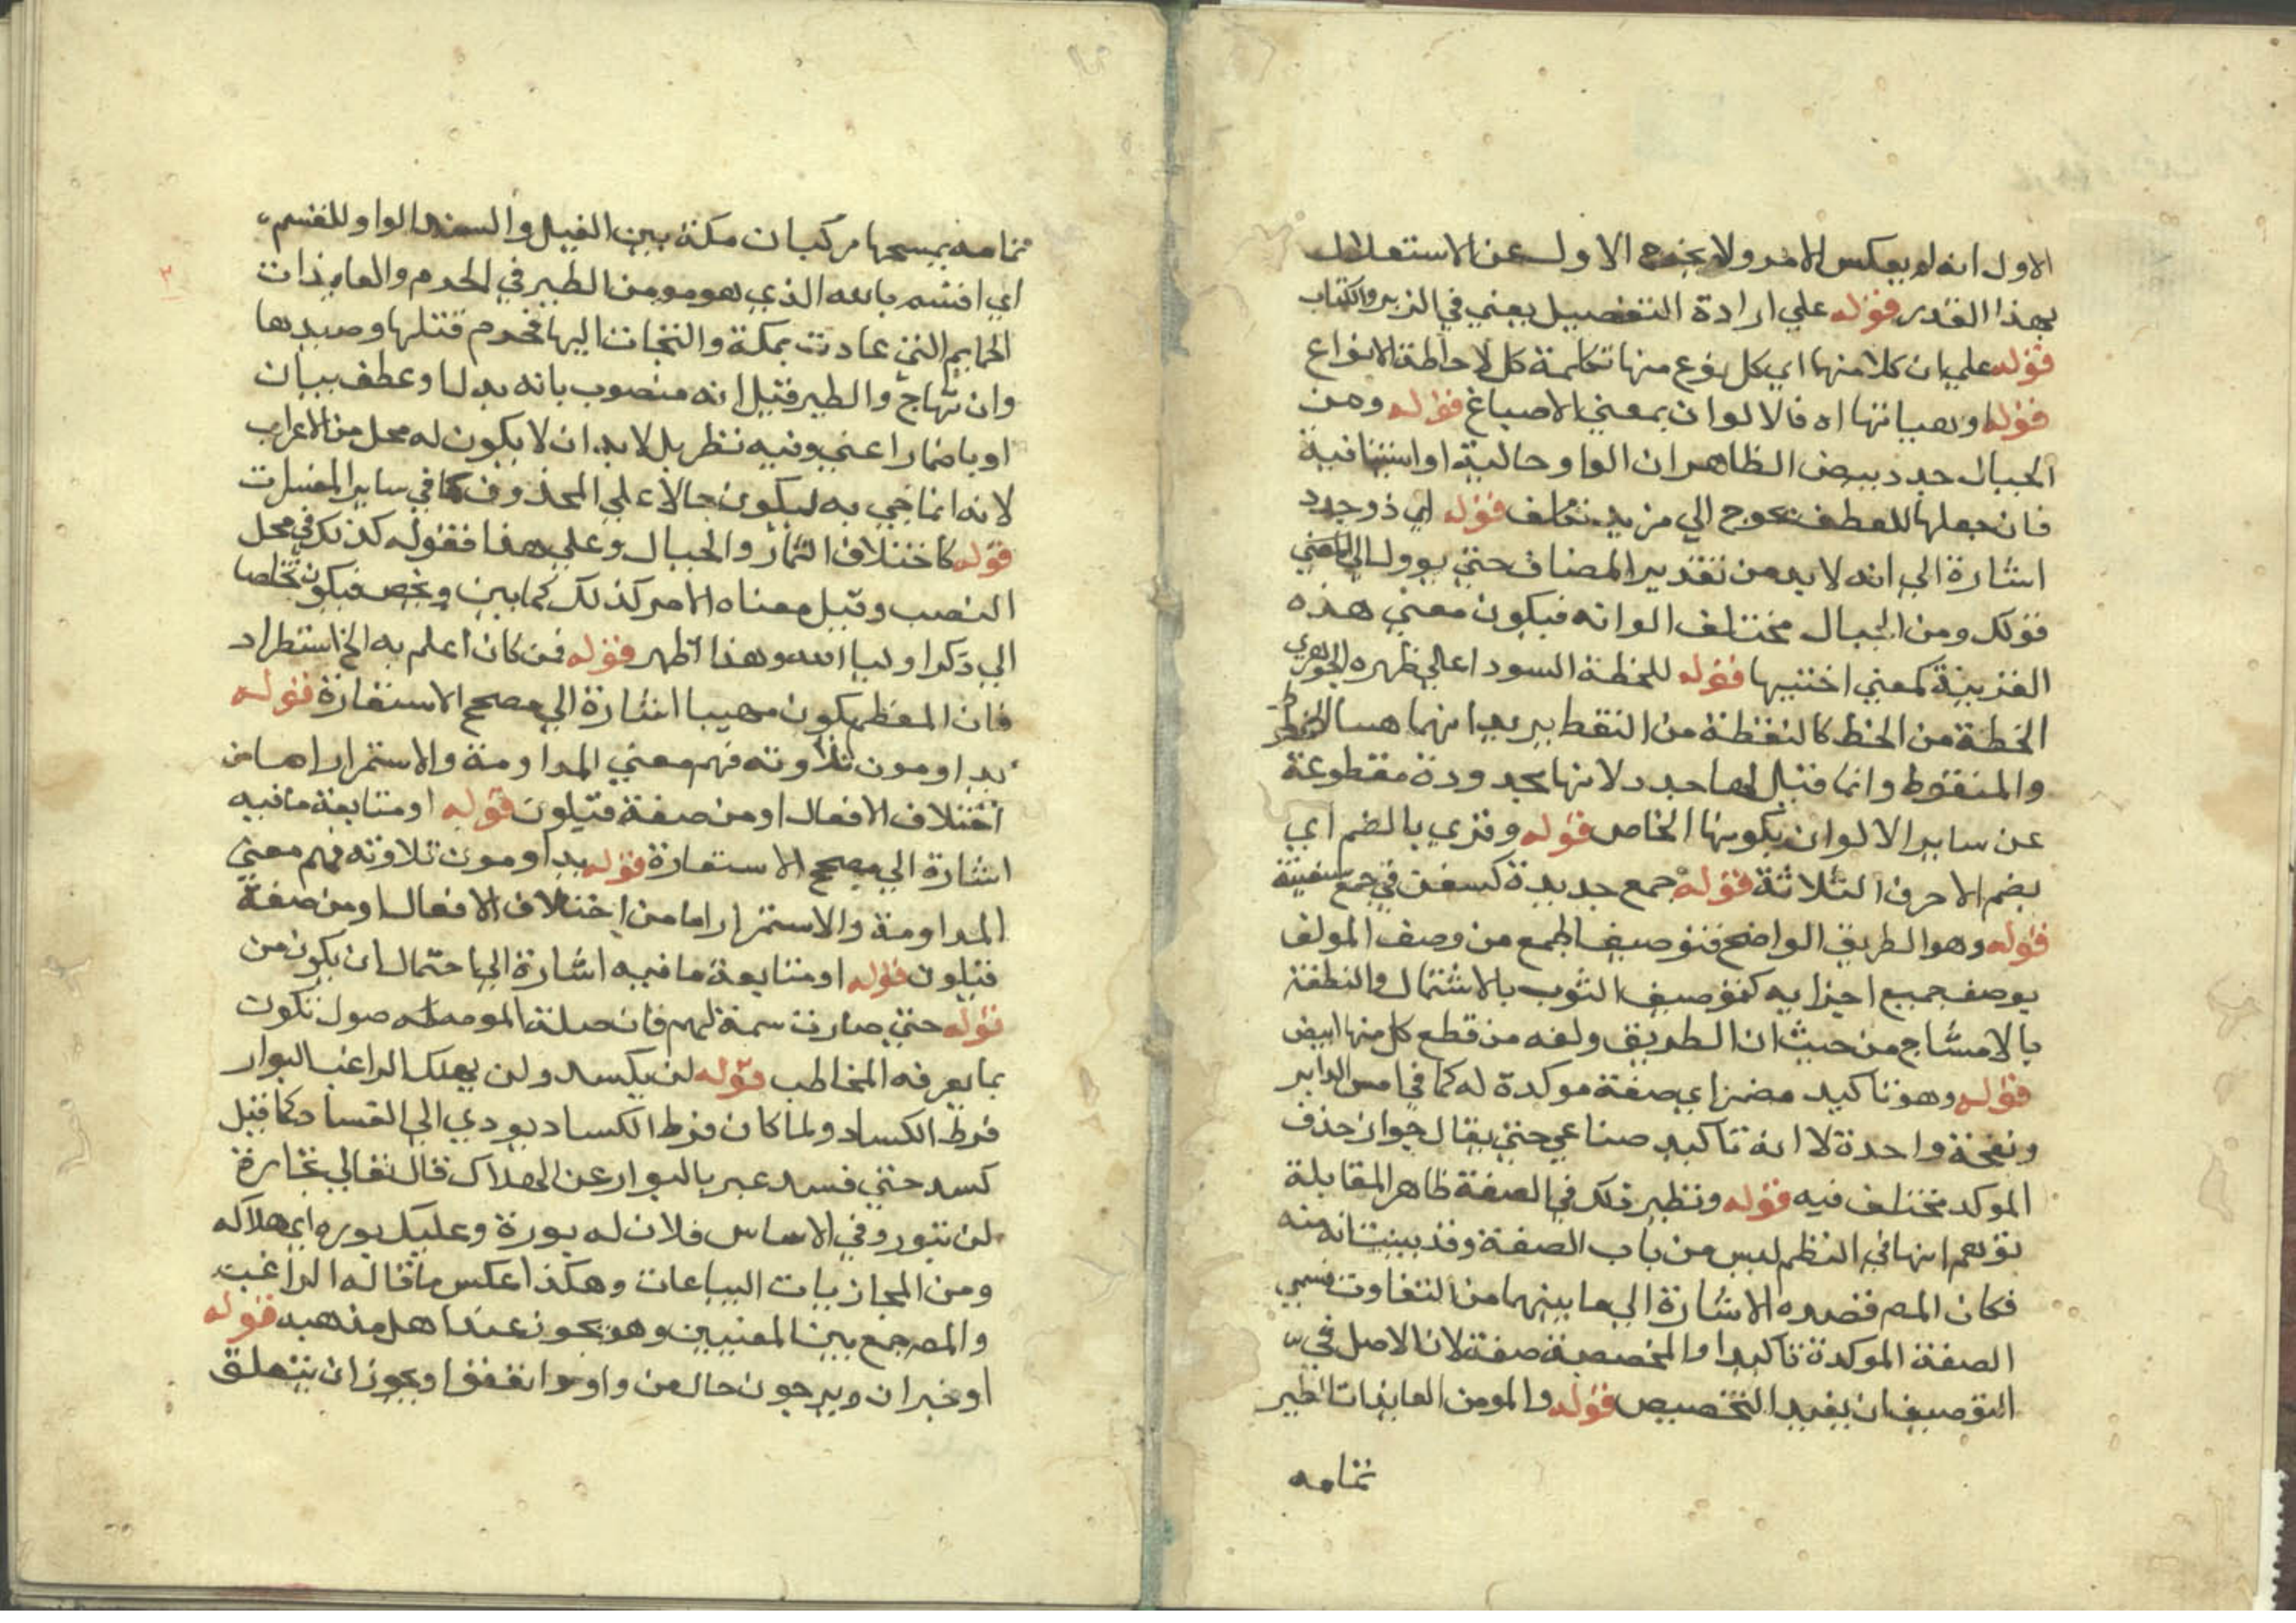 الاول انه لم يعكس الامر ولا يخرج الاول عن الاستقلال
بهذا القدر قوله علي ارادة التفصيل يعني في الزبر والكتاب
قوله علي ان كلا منها اي كل نوع منها تكلمة كل لاحاطة الانواع
قوله او هيياتها اه فالالوان بمعني الاصباغ قوله ومن
الجبال جدد بيض الظاهر ان الواو حالية او استينافية
فان جعلها للعطف يحوج الي مزيد تكلف قوله اي ذو جدد
اشارة الي انه لا بد من تقدير المضاف حتي يوول الي المعني
قولك ومن الجبال مختلف الوانه فيكون معني هذه
القرينة كمعني اختيها قوله للخطة السودا علي ظهره الجوهري
الخطة من الخط كالنقطة من النقط يريد انهما
والمنقوط وانما قيل لها جدد لانها مجدودة مقطوعة
عن ساير الالوان بكونها الخاص قوله وقري بالضم اي
بضم الاحرف الثلاثة قوله جمع جديدة كسفن في جمع سفينة
قوله وهو الطريق الواضح فتوصيف الجمع من وصف المولف
بوصف جميع اجزايه كتوصيف الثوب بالاشتمال والنطفة
بالامشاج من حيث ان الطريق ولغه من قطع كل منها ابيض
قوله وهو تاكيد مضمر اي صفة موكدة له كما في امس الدابر
ونفخة واحدة لا انه تاكيد صناعي حتي يقال جواز حذف
الموكد مختلف فيه قوله ونظير ذلك في الصفة ظاهر المقابلة
توهم انها في النظم ليس من باب الصفة وقد بينت انه منه
فكان المص قصده الاشارة الي ما بينهما من التفاوت فسمي
الصفة الموكدة تاكيدا والمخصصة صفة لان الاصل في
التوصيف ان يفيد التخصيص قوله والمومن العايذات الطير
تمامه
تمامه يمسحها ركبان مكة بين الغيل والسند الواو للقسم
اي اقسم بالله الذي هو مومن الطير في الحرم والعايذات
الحمايم التي عاذت بمكة والتجات اليها فحرم قتلها وصيدها
وان تهاج والطير قيل انه منصوب بانه بدل او عطف بيان
او باضمار اعني وفيه نظر بل لا بد ان لا يكون له محل من الاعراب
لانه انما جي به ليكون حالا علي المحذوف كما في ساير المفسرات
قوله كاختلاف الثمار والجبال وعلي هذا فقوله كذلك في محل
النصب وقيل معناه الامر كذلك كما بين ويخص فيكون تخلصا
الي ذكر اوليا الله وهذا اظهر قوله فمن كان اعلم به الخ استطراد
فان المعظم يكون مهيبا اشارة الي مصحح الاستعارة قوله
يداومون تلاوته فهم معني المداومة والاستمرار اما من
اختلاف الافعال او من صفة قتيلون قوله او متابعة ما فيه
اشارة الي مصحح الاستعارة قوله يداومون تلاوته فهم معني
المداومة والاستمرار اما من اختلاف الافعال او من صفة
قتيلون قوله او متابعة ما فيه اشارة الي احتمال ان يكون من
قوله حتي صارت سمة لهم فان صلة الموصول تكون
بما يعرفه المخاطب قوله لن يكسد ولن يهلك الراغب البوار
فرط الكساد ولما كان فرط الكساد يودي الي الفساد كما قيل
كسد حتي فسد عبر بالبوار عن الهلاك قال تعالي تجارة
لن تبور وفي الاساس فلان له بورة وعليك بوره اي هلاكه
ومن المجاز بات البياعات وهكذا عكس ما قاله الراغب
والمص جمع بين المعنيين وهو يجوز عند اهل مذهبه قوله
او خبر ان ويرجون حال من واو وانفقوا ويجوز ان يتعلق